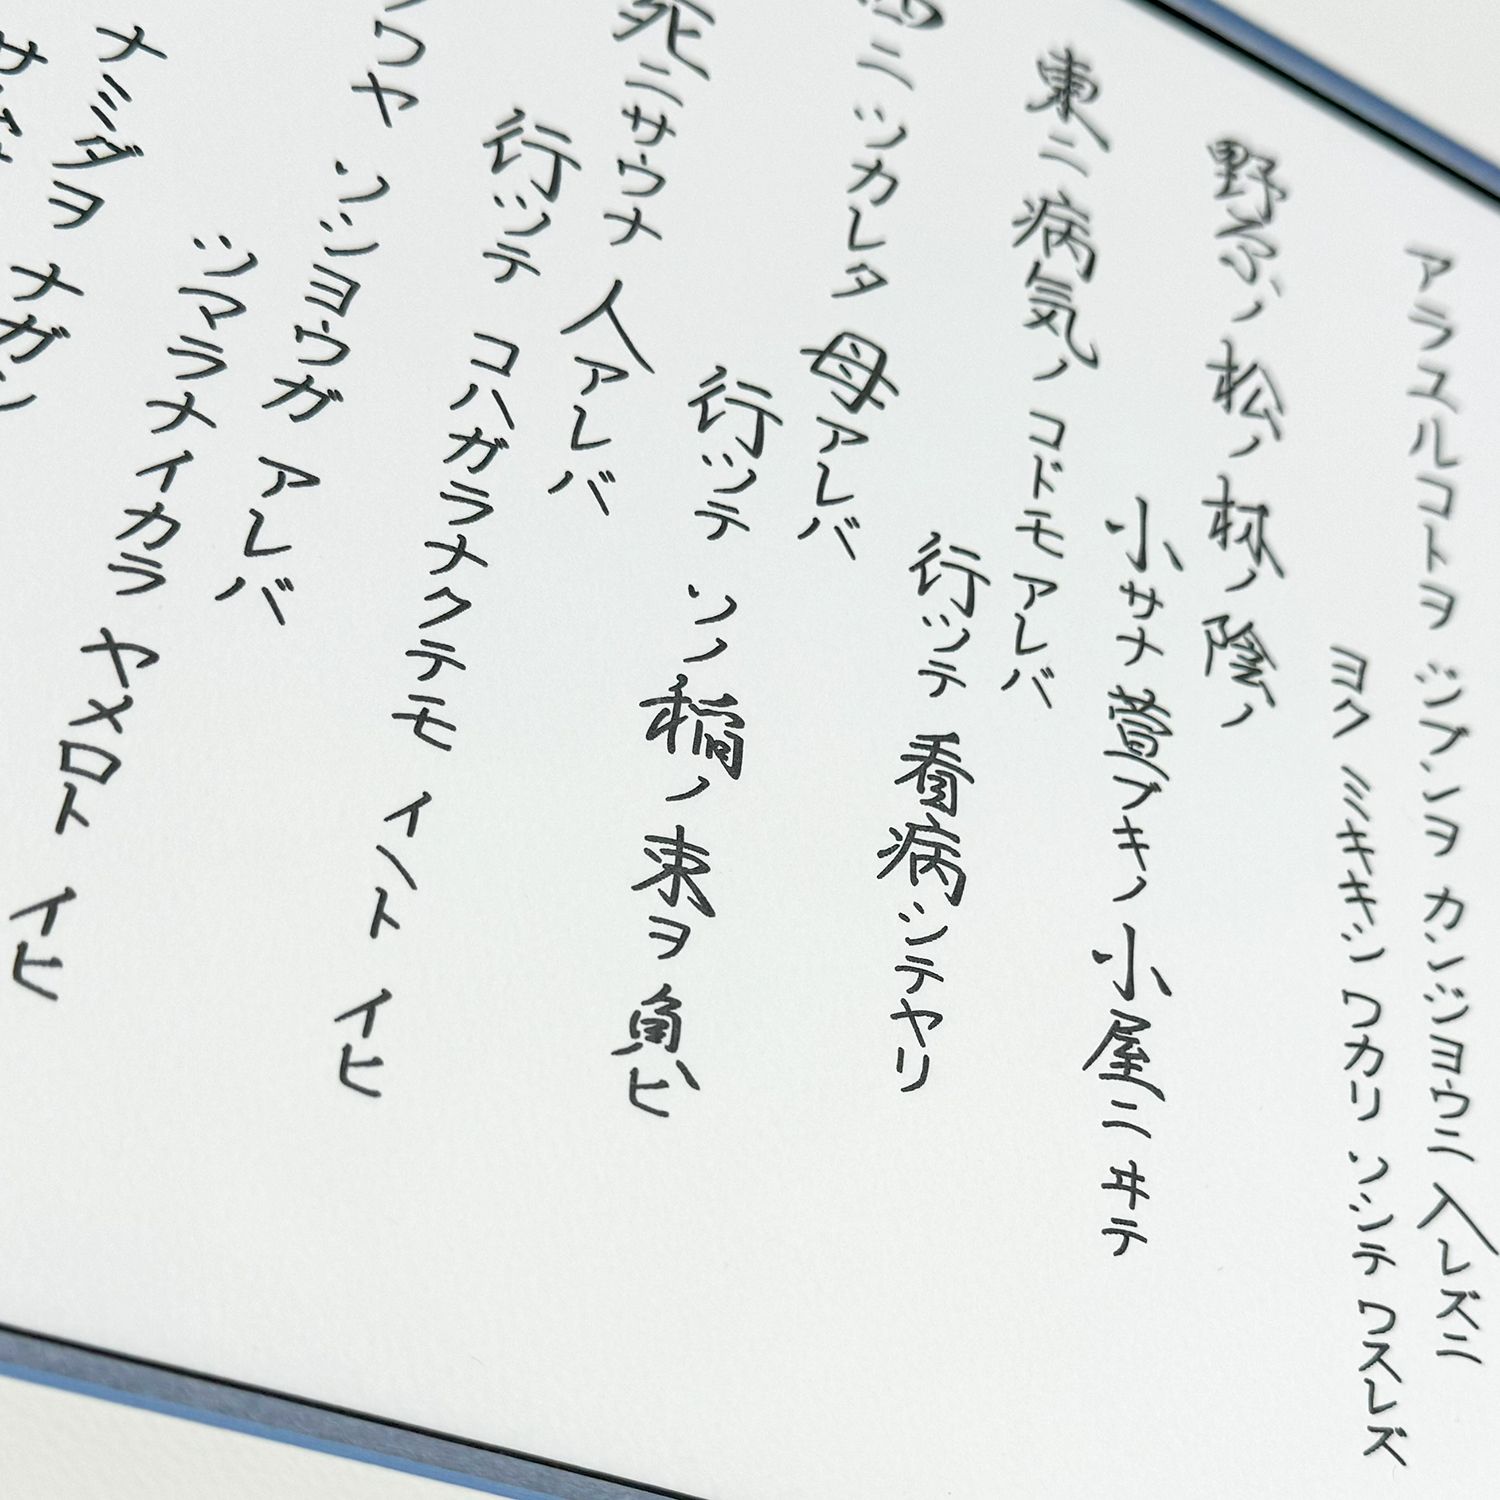 アラユルコトヲ ジブンヲ カンジヨウニ 入レズニ
ヨク ミキキシ ワカリ ソシテ ワスレズ
野原ノ 松ノ 林ノ 陰ノ
小サナ 萱ブキノ 小屋ニ ヰテ
東ニ 病気ノ コドモ アレバ
行ツテ 看病シテヤリ
西ニ ツカレタ 母アレバ
行ツテ ソノ 稲ノ 束ヲ 負ヒ
死ニサウナ 人アレバ
行ツテ コハガラナクテモ イヽト イヒ
クワヤ ソシヨウガ アレバ
ツマラナイカラ ヤメロト イヒ
ナミダヲ ナガシ